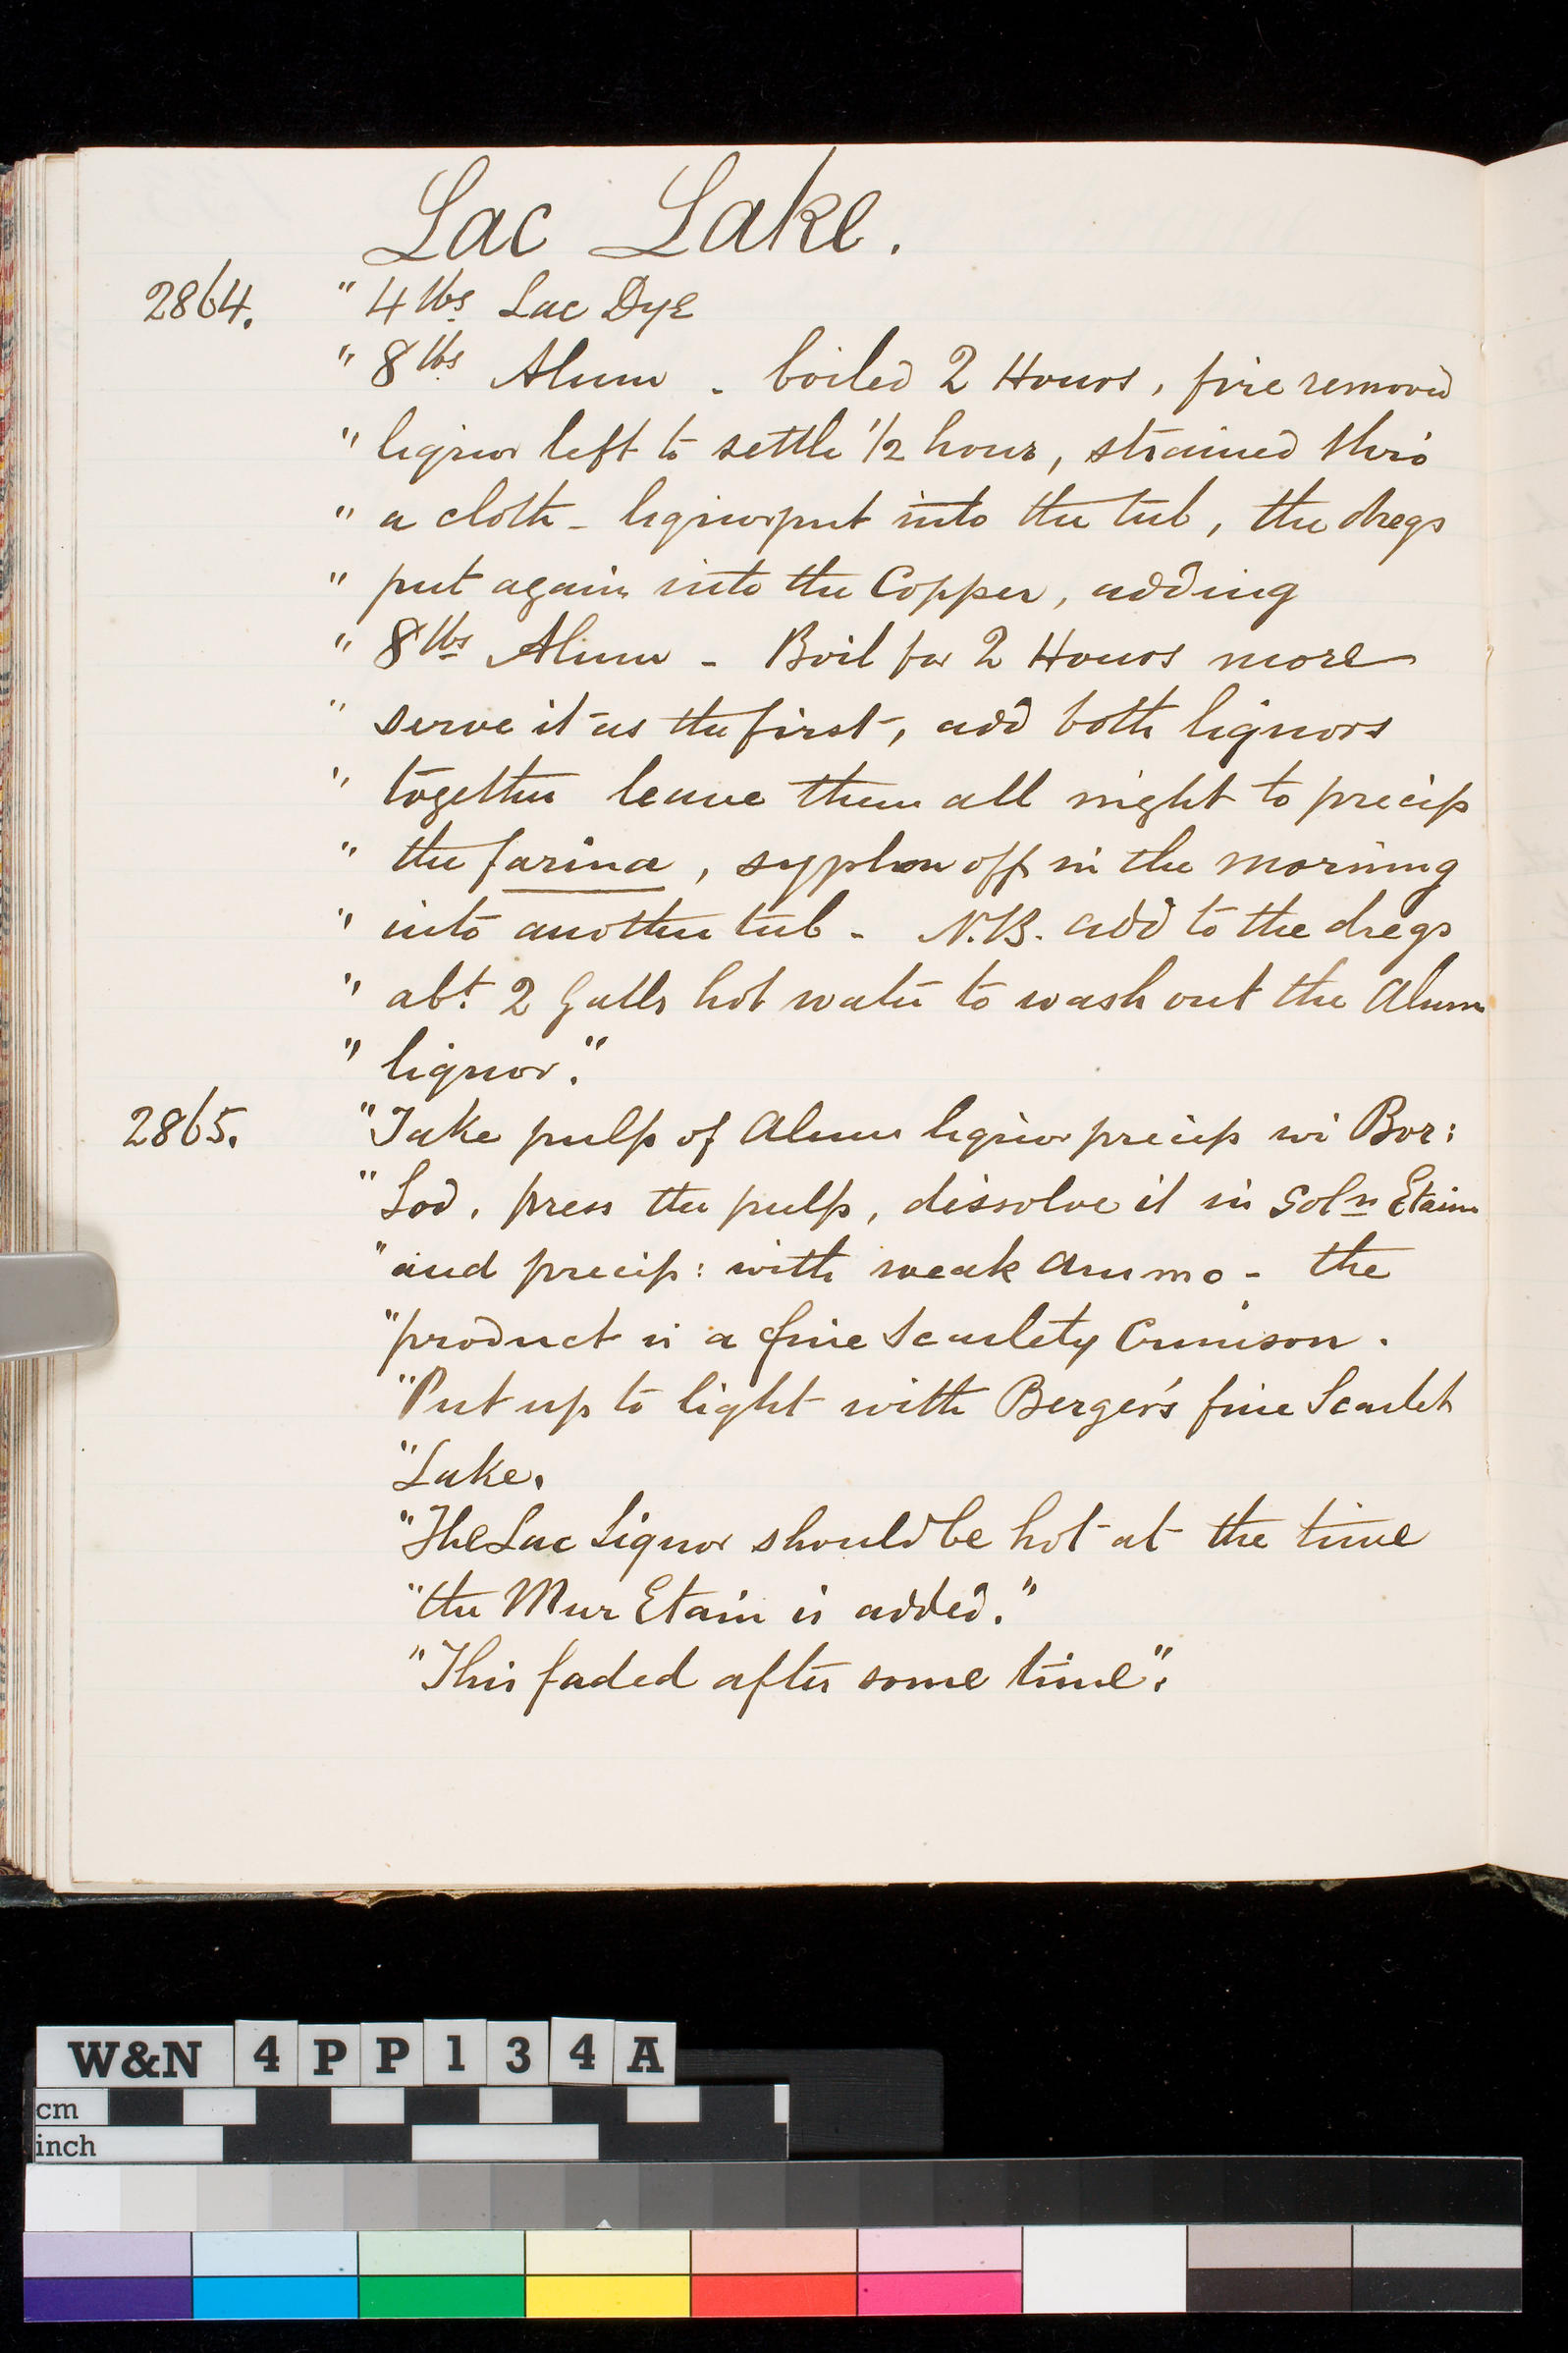 Lac Lake.
2864. " 4 lbs Lac Dye
" 8 lbs Alum - boiled 2 Hours, fire removd
" liquor left to settle 1/2 hour, strained thro'
" a cloth - liquor put into the tub, the dregs
" put again into the Copper, adding
" 8 lbs Alum - Boil for 2 Hours more
" serve it as the first, add both liquors
" together leave them all night to precip
" the farina, syphon off in the morning
" into another tub - N.B. add to the dregs
" abt. 2 Galls hot water to wash out the Alum
" liquor."
2865. "Take pulp of Alum liquor precip wi Bor:
" Sod. press the pulp, dissolve it in Soln Etain
" and precip: with weak Ammo - the
"product is a fine Scarlety Crimson.
"Put up to light with Berger's fine Scarlet
"Lake.
"The Lac Liquor should be hot at the time
"the Mur Etain is added."
"This faded after some time".
W&N 4PP134A
cm
inch